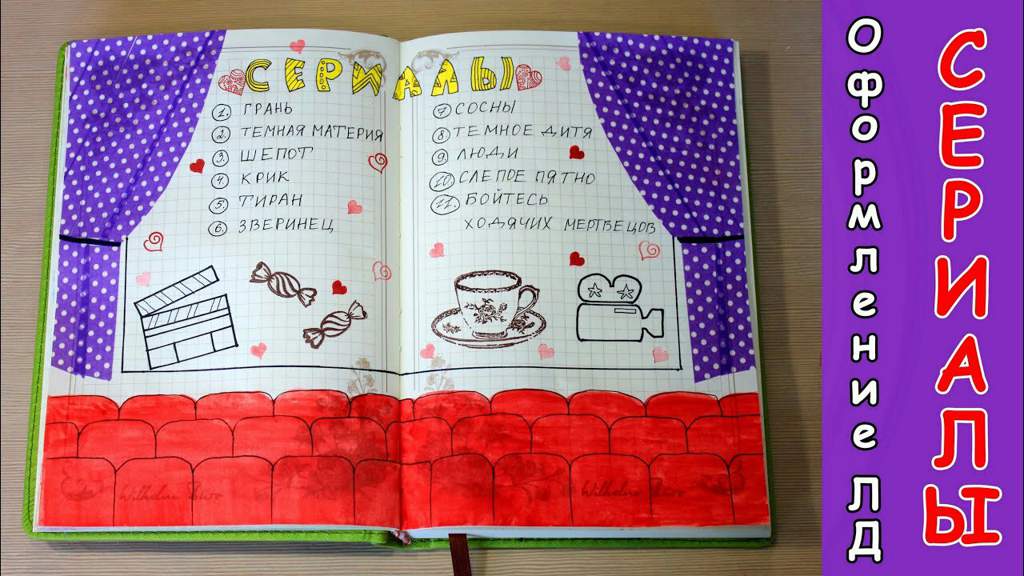 СЕРИАЛЫ
1. ГРАНЬ
2. ТЕМНАЯ МАТЕРИЯ
3. ШЕПОТ
4. КРИК
5. ТИРАН
6. ЗВЕРИНЕЦ
7. СОСНЫ
8. ТЕМНОЕ ДИТЯ
9. ЛЮДИ
10. СЛЕПОЕ ПЯТНО
11. БОЙТЕСЬ
ХОДЯЧИХ МЕРТВЕЦОВ
Оформление ЛД
СЕРИАЛЫ